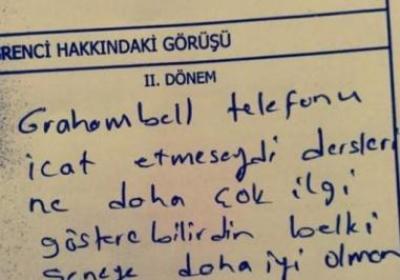 RENCİ HAKKINDAKİ GÖRÜŞÜ
II. DÖNEM
Grahambell telefonu
icat etmeseydi dersleri
ne daha çok ilgi
gösterebilirdin belki
Seneye daha iyi olman